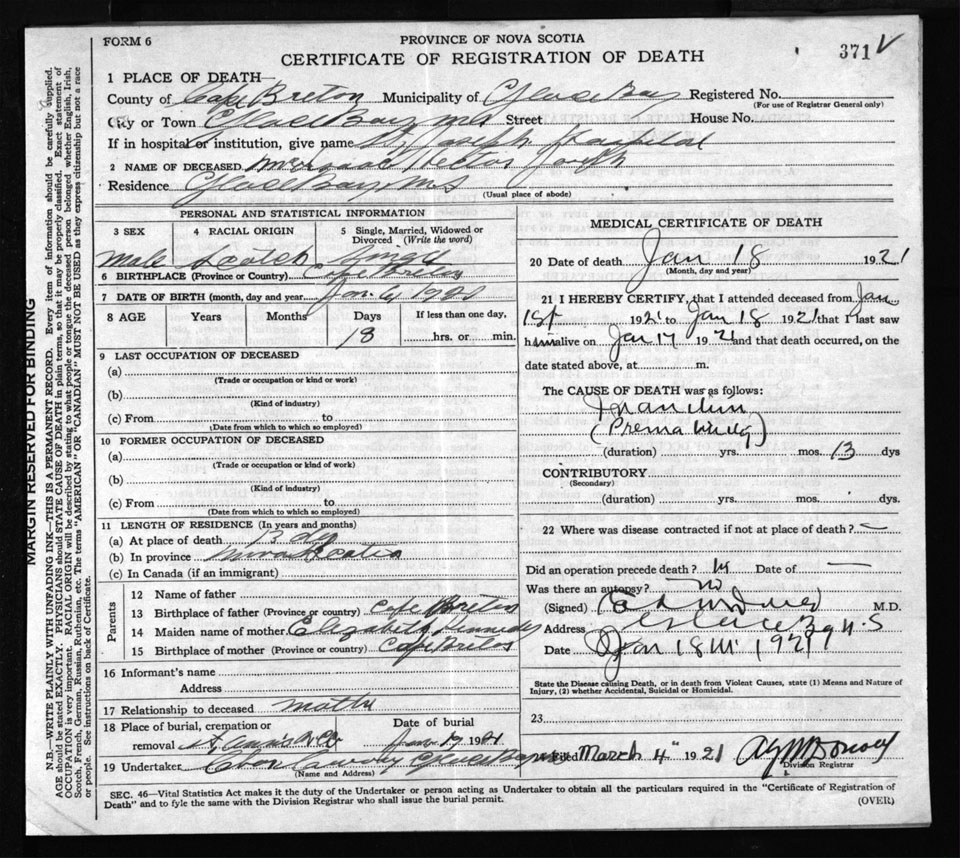 FORM 6
PROVINCE OF NOVA SCOTIA
CERTIFICATE OF REGISTRATION OF DEATH
371
1 PLACE OF DEATH—
County of Cape Breton Municipality of Glace Bay Registered No.
(For use of Registrar General only)
City or Town Glace Bay N.S Street House No.
If in hospital or institution, give name St Joseph Hospital
2 NAME OF DECEASED Hector Joseph
Residence Glace Bay N S
(Usual place of abode)
PERSONAL AND STATISTICAL INFORMATION
3 SEX
4 RACIAL ORIGIN
5 Single, Married, Widowed or Divorced (Write the word)
Male Scotch Single
6 BIRTHPLACE (Province or Country) Cape Breton
7 DATE OF BIRTH (month, day and year)
8 AGE Years Months Days If less than one day,
18 hrs. or min.
9 LAST OCCUPATION OF DECEASED
(a)
(Trade or occupation or kind or work)
(b)
(Kind of industry)
(c) From to
(Date from which to which so employed)
10 FORMER OCCUPATION OF DECEASED
(a)
(Trade or occupation or kind of work)
(b)
(Kind of industry)
(c) From to
(Date from which to which so employed)
11 LENGTH OF RESIDENCE (In years and months)
(a) At place of death 13 dy
(b) In province Nova Scotia
(c) In Canada (if an immigrant)
Parents
12 Name of father
13 Birthplace of father (Province or country) Cape Breton
14 Maiden name of mother Elizabeth Kennedy
15 Birthplace of mother (Province or country) Cape Breton
16 Informant's name
Address
17 Relationship to deceased mother
18 Place of burial, cremation or removal St Ann's
Date of burial
Jan 19 1921
19 Undertaker Glace Bay
(Name and Address)
MEDICAL CERTIFICATE OF DEATH
20 Date of death Jan 18 1921
(Month, day and year)
21 I HEREBY CERTIFY, that I attended deceased from Jan
1st 1921 to Jan 18 1921 that I last saw
him alive on Jan 17 1921 and that death occurred, on the
date stated above, at m.
The CAUSE OF DEATH was as follows:
Inanition
(Prematurity)
(duration) yrs. mos. 13 dys
CONTRIBUTORY
(Secondary)
(duration) yrs. mos. dys.
22 Where was disease contracted if not at place of death? —
Did an operation precede death? Date of —
Was there an autopsy? no
(Signed) M.D.
Address Glace Bay N.S
Date Jan 18th 1921
State the Disease causing Death, or in death from Violent Causes, state (1) Means and Nature of
Injury, (2) whether Accidental, Suicidal or Homicidal.
23
Filed March 4th 1921
Division Registrar
SEC. 46—Vital Statistics Act makes it the duty of the Undertaker or person acting as Undertaker to obtain all the particulars required in the "Certificate of Registration of
Death" and to fyle the same with the Division Registrar who shall issue the burial permit.
(OVER)
MARGIN RESERVED FOR BINDING
N.B.—WRITE PLAINLY WITH UNFADING INK—THIS IS A PERMANENT RECORD. Every item of information should be carefully supplied.
AGE should be stated EXACTLY. PHYSICIANS should STATE CAUSE OF DEATH in plain terms, so that it may be properly classified. Exact statement of
OCCUPATION is very important. RACIAL ORIGIN will be described by stating to what people or tongue the deceased person belonged whether English, Irish,
Scotch, French, German, Russian, Ruthenian, etc. The terms "AMERICAN" OR "CANADIAN" MUST NOT BE USED as they express citizenship but not a race
or people. See instructions on back of Certificate.